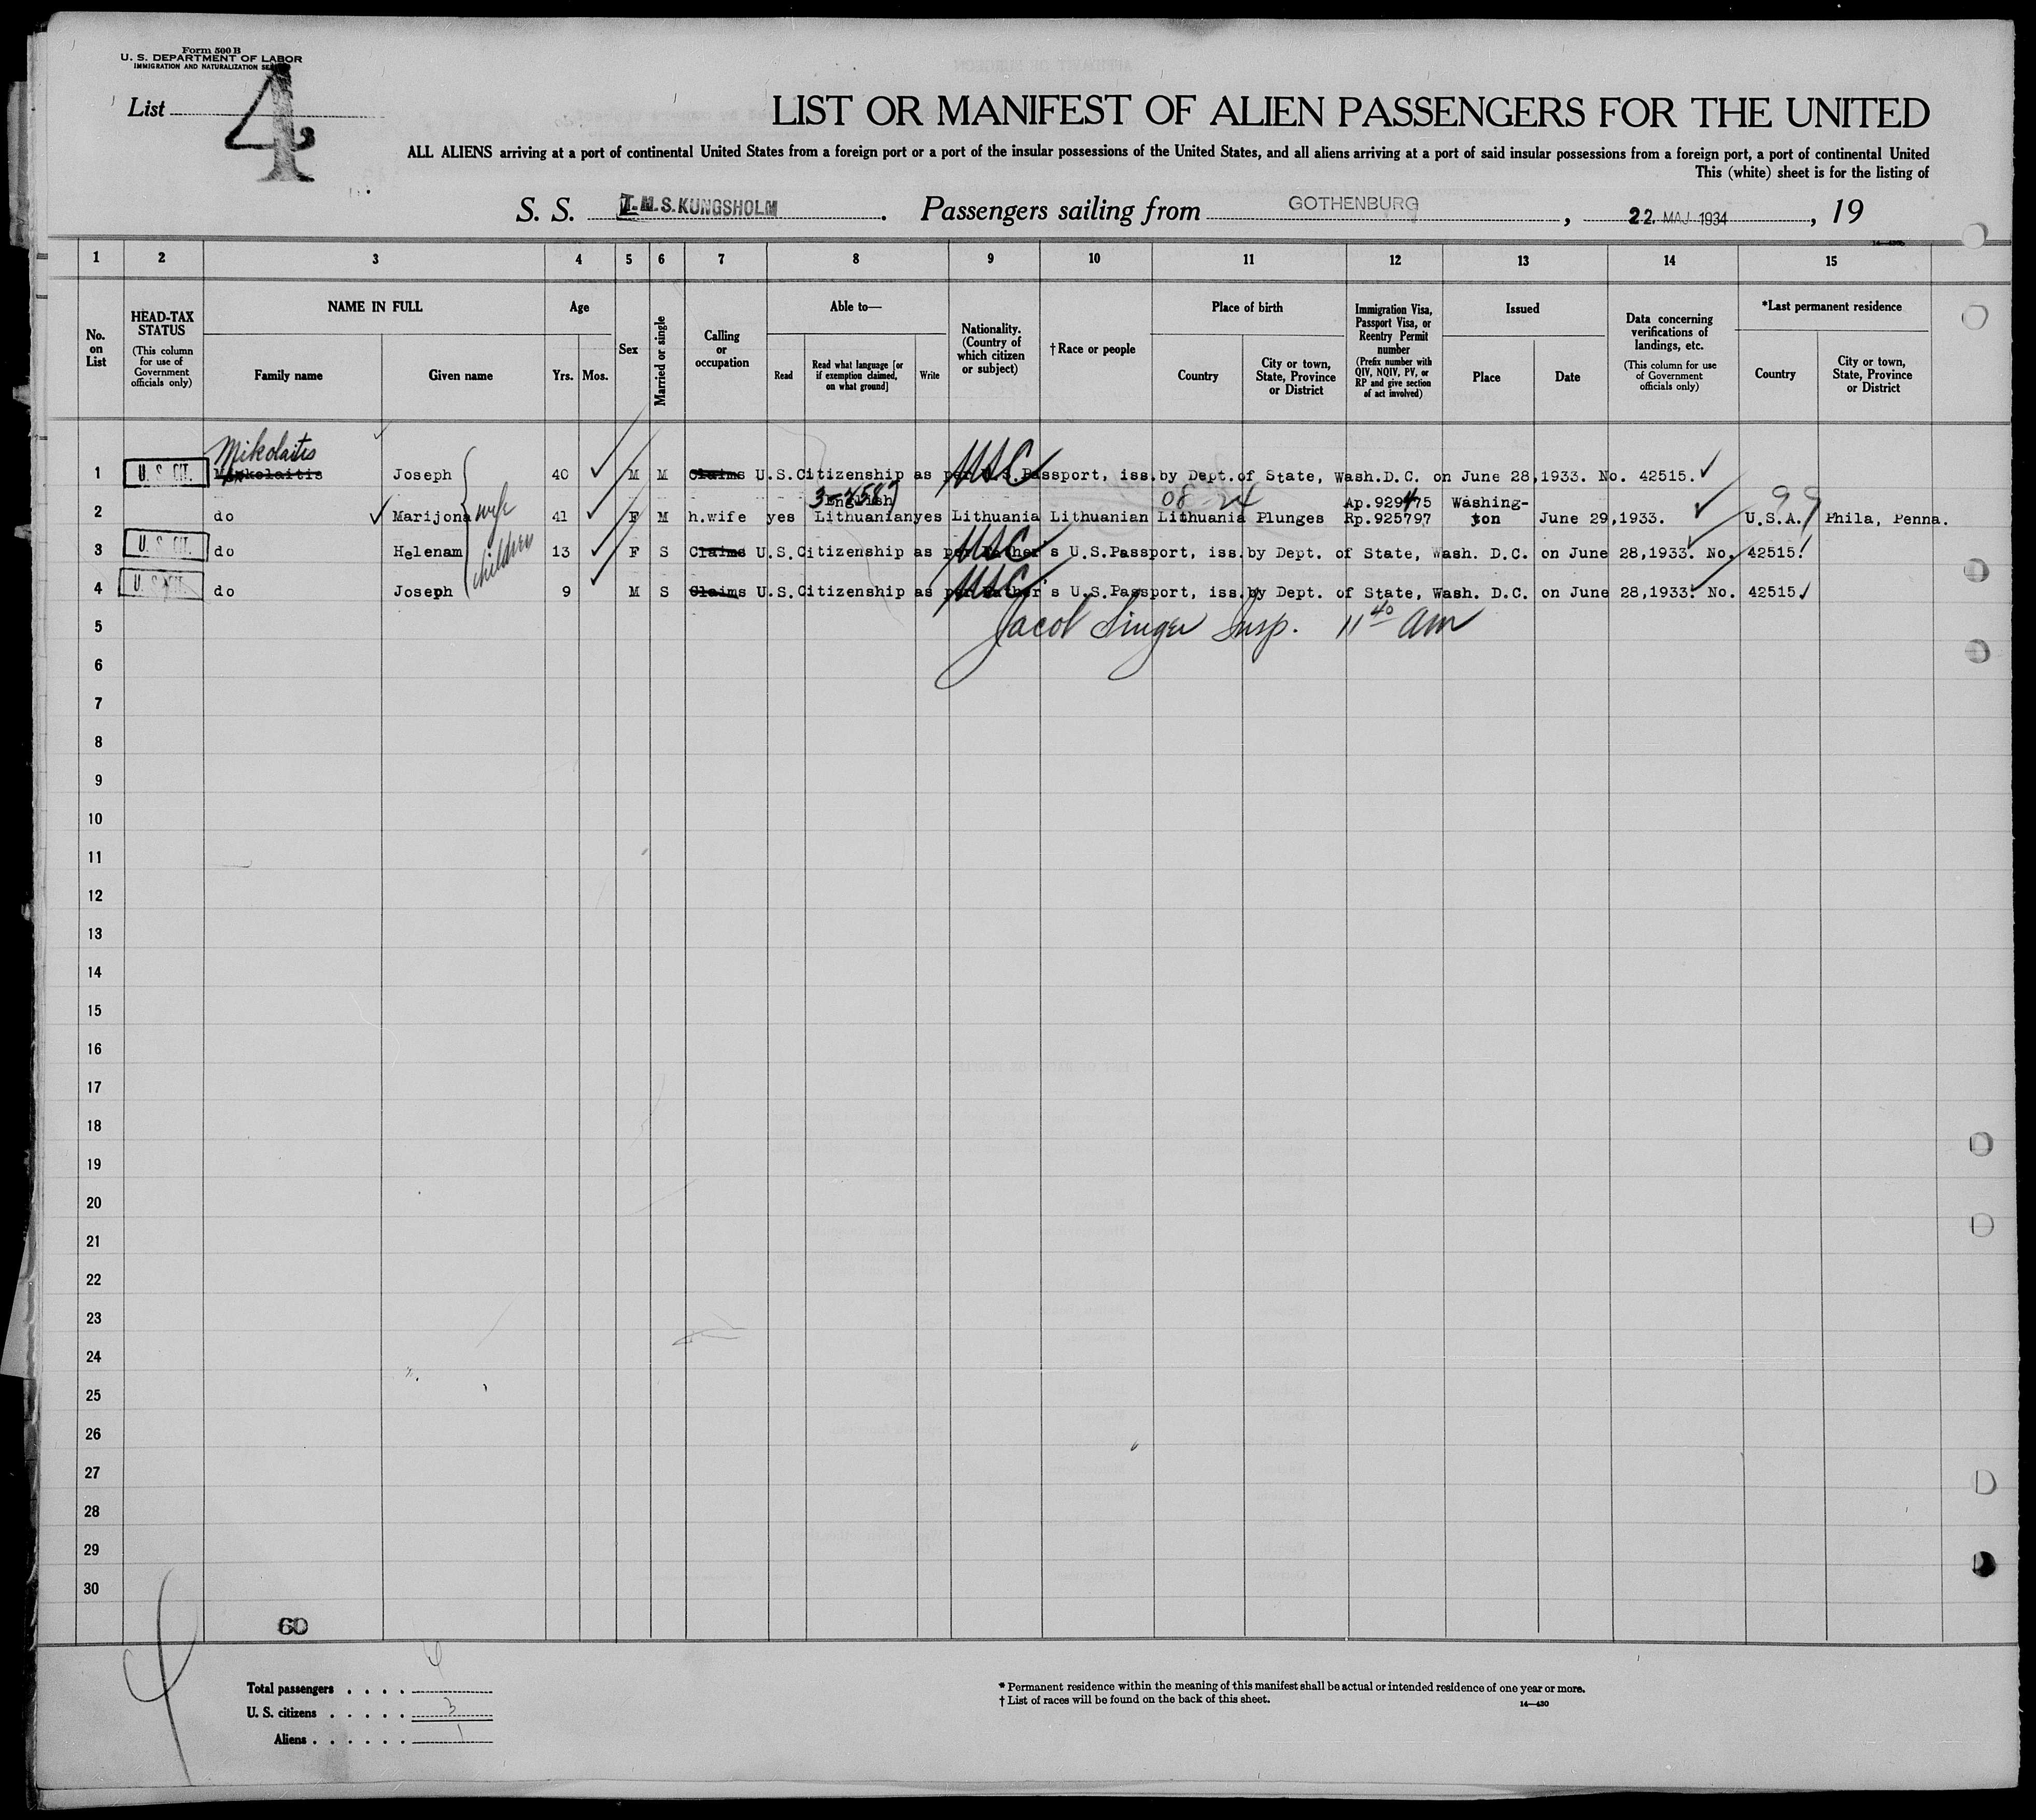 Form 500 B
U. S. DEPARTMENT OF LABOR
IMMIGRATION AND NATURALIZATION
List 4
LIST OR MANIFEST OF ALIEN PASSENGERS FOR THE UNITED
ALL ALIENS arriving at a port of continental United States from a foreign port or a port of the insular possessions of the United States, and all aliens arriving at a port of said insular possessions from a foreign port, a port of continental United
This (white) sheet is for the listing of
S. S. M.S. KUNGSHOLM. Passengers sailing from GOTHENBURG, 22. MAJ 1934, 19
14—430
1 2 3 4 5 6 7 8 9 10 11 12 13 14 15
No. on List
HEAD-TAX STATUS (This column for use of Government officials only)
NAME IN FULL
Family name Given name
Age
Yrs. Mos.
Sex
Married or single
Calling or occupation
Able to—
Read Read what language [or if exemption claimed, on what ground] Write
Nationality. (Country of which citizen or subject)
†Race or people
Place of birth
Country City or town, State, Province or District
Immigration Visa, Passport Visa, or Reentry Permit number (Prefix number with QIV, NQIV, PV, or RP and give section of act involved)
Issued
Place Date
Data concerning verifications of landings, etc. (This column for use of Government officials only)
*Last permanent residence
Country City or town, State, Province or District
Mikolaitis
1 U. S. CIT. Joseph 40 M M Claims U.S.Citizenship as per U.S.Passport, iss.by Dept.of State, Wash.D.C. on June 28,1933. No. 42515. USC
English 08 24 Ap.929475 Washing- 99
2 do Marijona wife 41 F M h.wife yes Lithuanian yes Lithuania Lithuanian Lithuania Plunges Rp.925797 ton June 29,1933. U.S.A. Phila, Penna.
3 U. S. CIT. do Helenam 13 F S Claims U.S.Citizenship as per Father's U.S.Passport, iss.by Dept. of State, Wash. D.C. on June 28,1933. No. 42515. USC
children
4 U. S. CIT. do Joseph 9 M S Claims U.S.Citizenship as per Father's U.S.Passport, iss.by Dept. of State, Wash. D.C. on June 28,1933. No. 42515. USC
5 Jacob Singer Insp. 11 40 am
6
7
8
9
10
11
12
13
14
15
16
17
18
19
20
21
22
23
24
25
26
27
28
29
30
60
Total passengers . . . . 4
U. S. citizens . . . . . 3
Aliens . . . . . . 1
* Permanent residence within the meaning of this manifest shall be actual or intended residence of one year or more.
† List of races will be found on the back of this sheet.
14—430